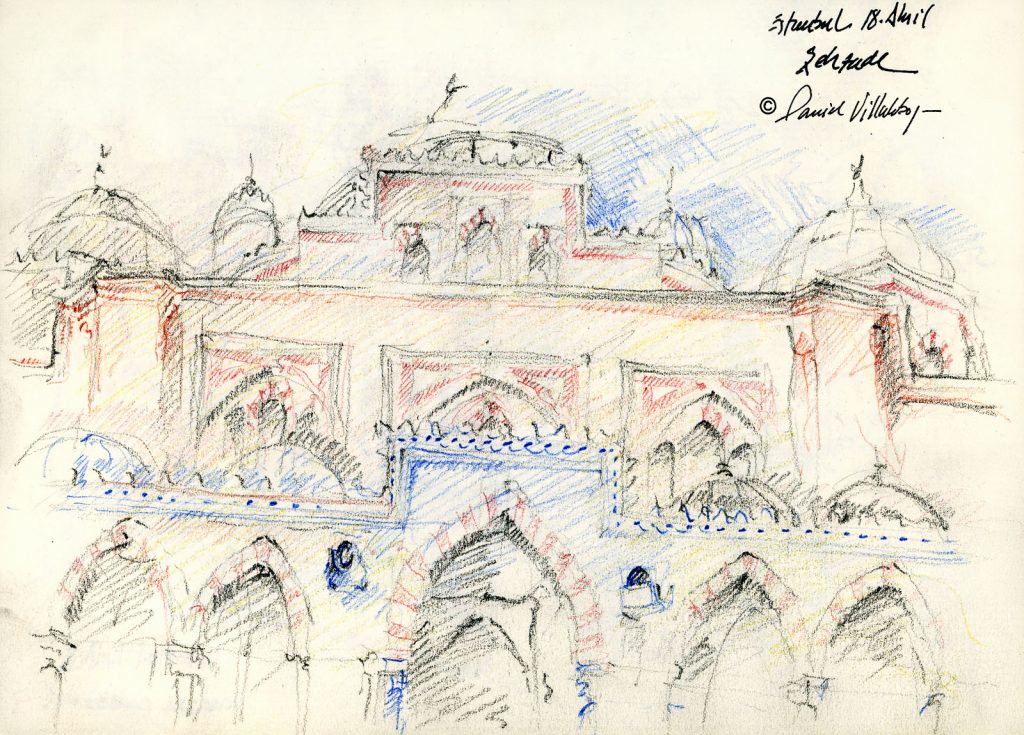 Istanbul. 18. Abril
Sehzade
© Daniel Villalobos